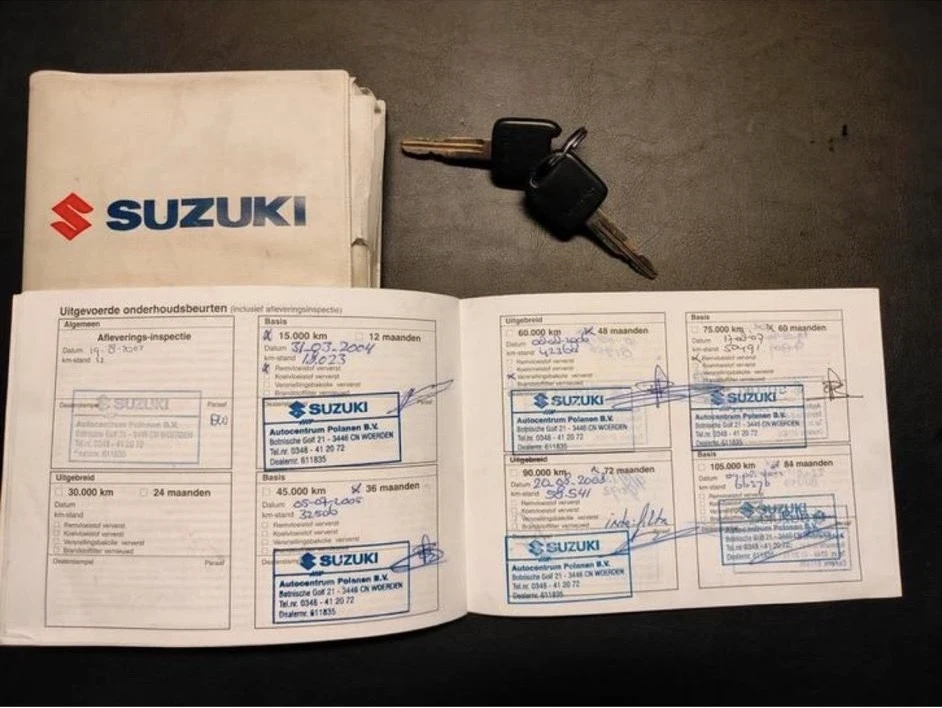 SUZUKI
Uitgevoerde onderhoudsbeurten (inclusief afleveringsinspectie)
Algemeen
Afleverings-inspectie
Datum
km-stand 12
Dealerstempel Paraaf
SUZUKI
Autocentrum Polanen B.V.
Botnische Golf 21 - 3446 CN WOERDEN
Tel.nr. 0348 - 41 20 72
611835
Basis
15.000 km 12 maanden
Datum 31-03-2004
km-stand 18.023
Remvloeistof ververst
Koelvloeistof ververst
Versnellingsbakolie ververst
Brandstoffilter vernieuwd
SUZUKI
Autocentrum Polanen B.V.
Botnische Golf 21 - 3446 CN WOERDEN
Tel.nr. 0348 - 41 20 72
Dealernr. 611835
Uitgebreid
30.000 km 24 maanden
Datum
km-stand
Remvloeistof ververst
Koelvloeistof ververst
Versnellingsbakolie ververst
Brandstoffilter vernieuwd
Dealerstempel Paraaf
Basis
45.000 km 36 maanden
Datum 05-07-2005
km-stand 32500
Remvloeistof ververst
Koelvloeistof ververst
Versnellingsbakolie ververst
Brandstoffilter vernieuwd
SUZUKI
Autocentrum Polanen B.V.
Botnische Golf 21 - 3446 CN WOERDEN
Tel.nr. 0348 - 41 20 72
Dealernr. 611835
Uitgebreid
60.000 km 48 maanden
Datum
km-stand
Remvloeistof ververst
Koelvloeistof ververst
Versnellingsbakolie ververst
Brandstoffilter vernieuwd
SUZUKI
Autocentrum Polanen B.V.
Botnische Golf 21 - 3446 CN WOERDEN
Tel.nr. 0348 - 41 20 72
Dealernr. 611835
Basis
75.000 km 60 maanden
Datum
km-stand 50491
Remvloeistof ververst
Koelvloeistof ververst
Versnellingsbakolie ververst
SUZUKI
Autocentrum Polanen B.V.
Botnische Golf 21 - 3446 CN WOERDEN
Tel.nr. 0348 - 41 20 72
Dealernr. 611835
Uitgebreid
90.000 km 72 maanden
Datum 20.08.2008
km-stand 58.541
Remvloeistof ververst
Koelvloeistof ververst
Versnellingsbakolie ververst
Brandstoffilter vernieuwd
SUZUKI
Autocentrum Polanen B.V.
Botnische Golf 21 - 3446 CN WOERDEN
Tel.nr. 0348 - 41 20 72
Dealernr. 611835
Basis
105.000 km 84 maanden
Datum
km-stand 66276
SUZUKI
Autocentrum Polanen B.V.
Botnische Golf 21 - 3446 CN WOERDEN
Tel.nr. 0348 - 41 20 72
Dealernr. 611835